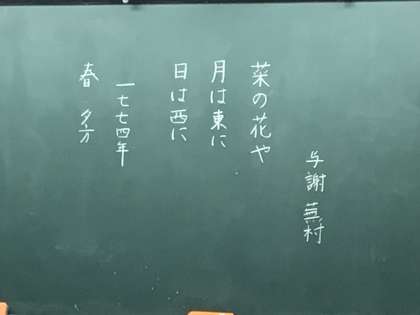 与謝蕪村
菜の花や
月は東に
日は西に
一七七四年
春 夕方